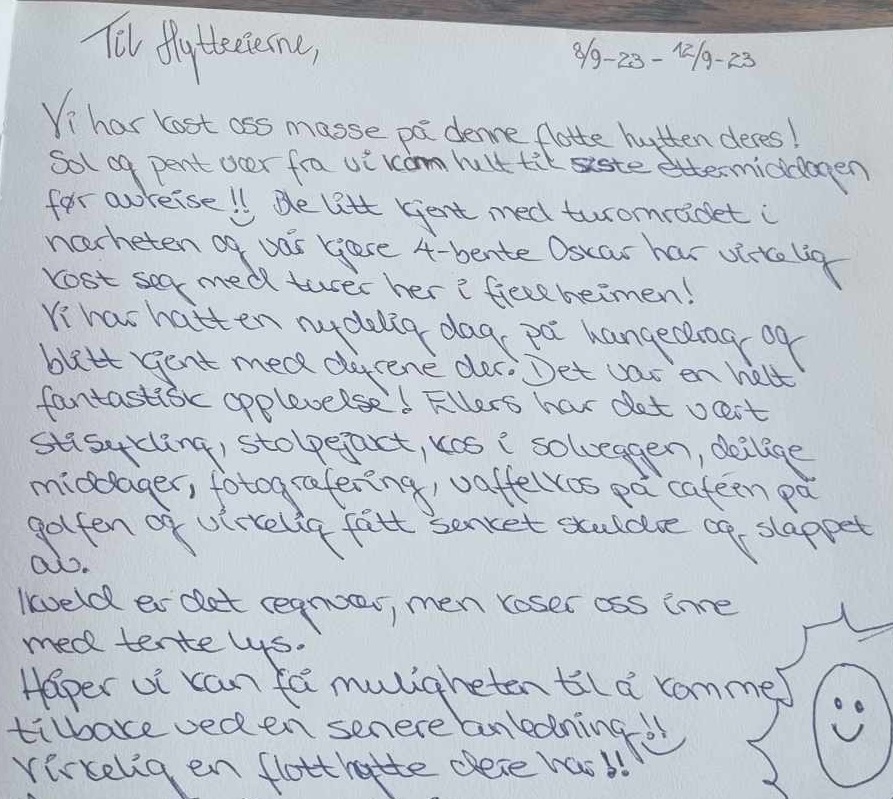 Til Hytteeierne,
8/9-23 - 12/9-23
Vi har kost oss masse på denne flotte hytten deres!
Sol og pent vær fra vi kom helt til siste ettermiddagen
før avreise!! Ble litt kjent med turområdet i
nærheten og vår kjære 4-bente Oscar har virkelig
kost seg med turer her i fjellheimen!
Vi har hatt en nydelig dag på Langedrag og
blitt kjent med dyrene der. Det var en helt
fantastisk opplevelse! Ellers har det vært
stisykling, stolpejakt, kos i solveggen, deilige
middager, fotografering, vaffelkos på caféen på
golfen og virkelig fått senket skuldre og slappet
av.
Ikveld er det regnvær, men koser oss inne
med tente lys.
Håper vi kan få muligheten til å komme
tilbake ved en senere anledning!!
Virkelig en flott hytte dere har!!